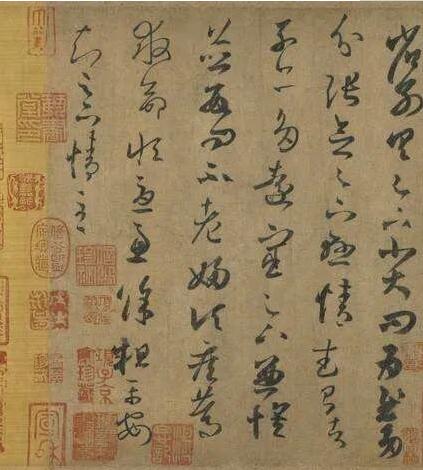 省別具足下小大問為慰多
分張念足下懸情武昌諸
子亦多遠宦足下兼懷
並數問不老婦頃疾篤
救命恒憂慮餘粗平安
知足下情至